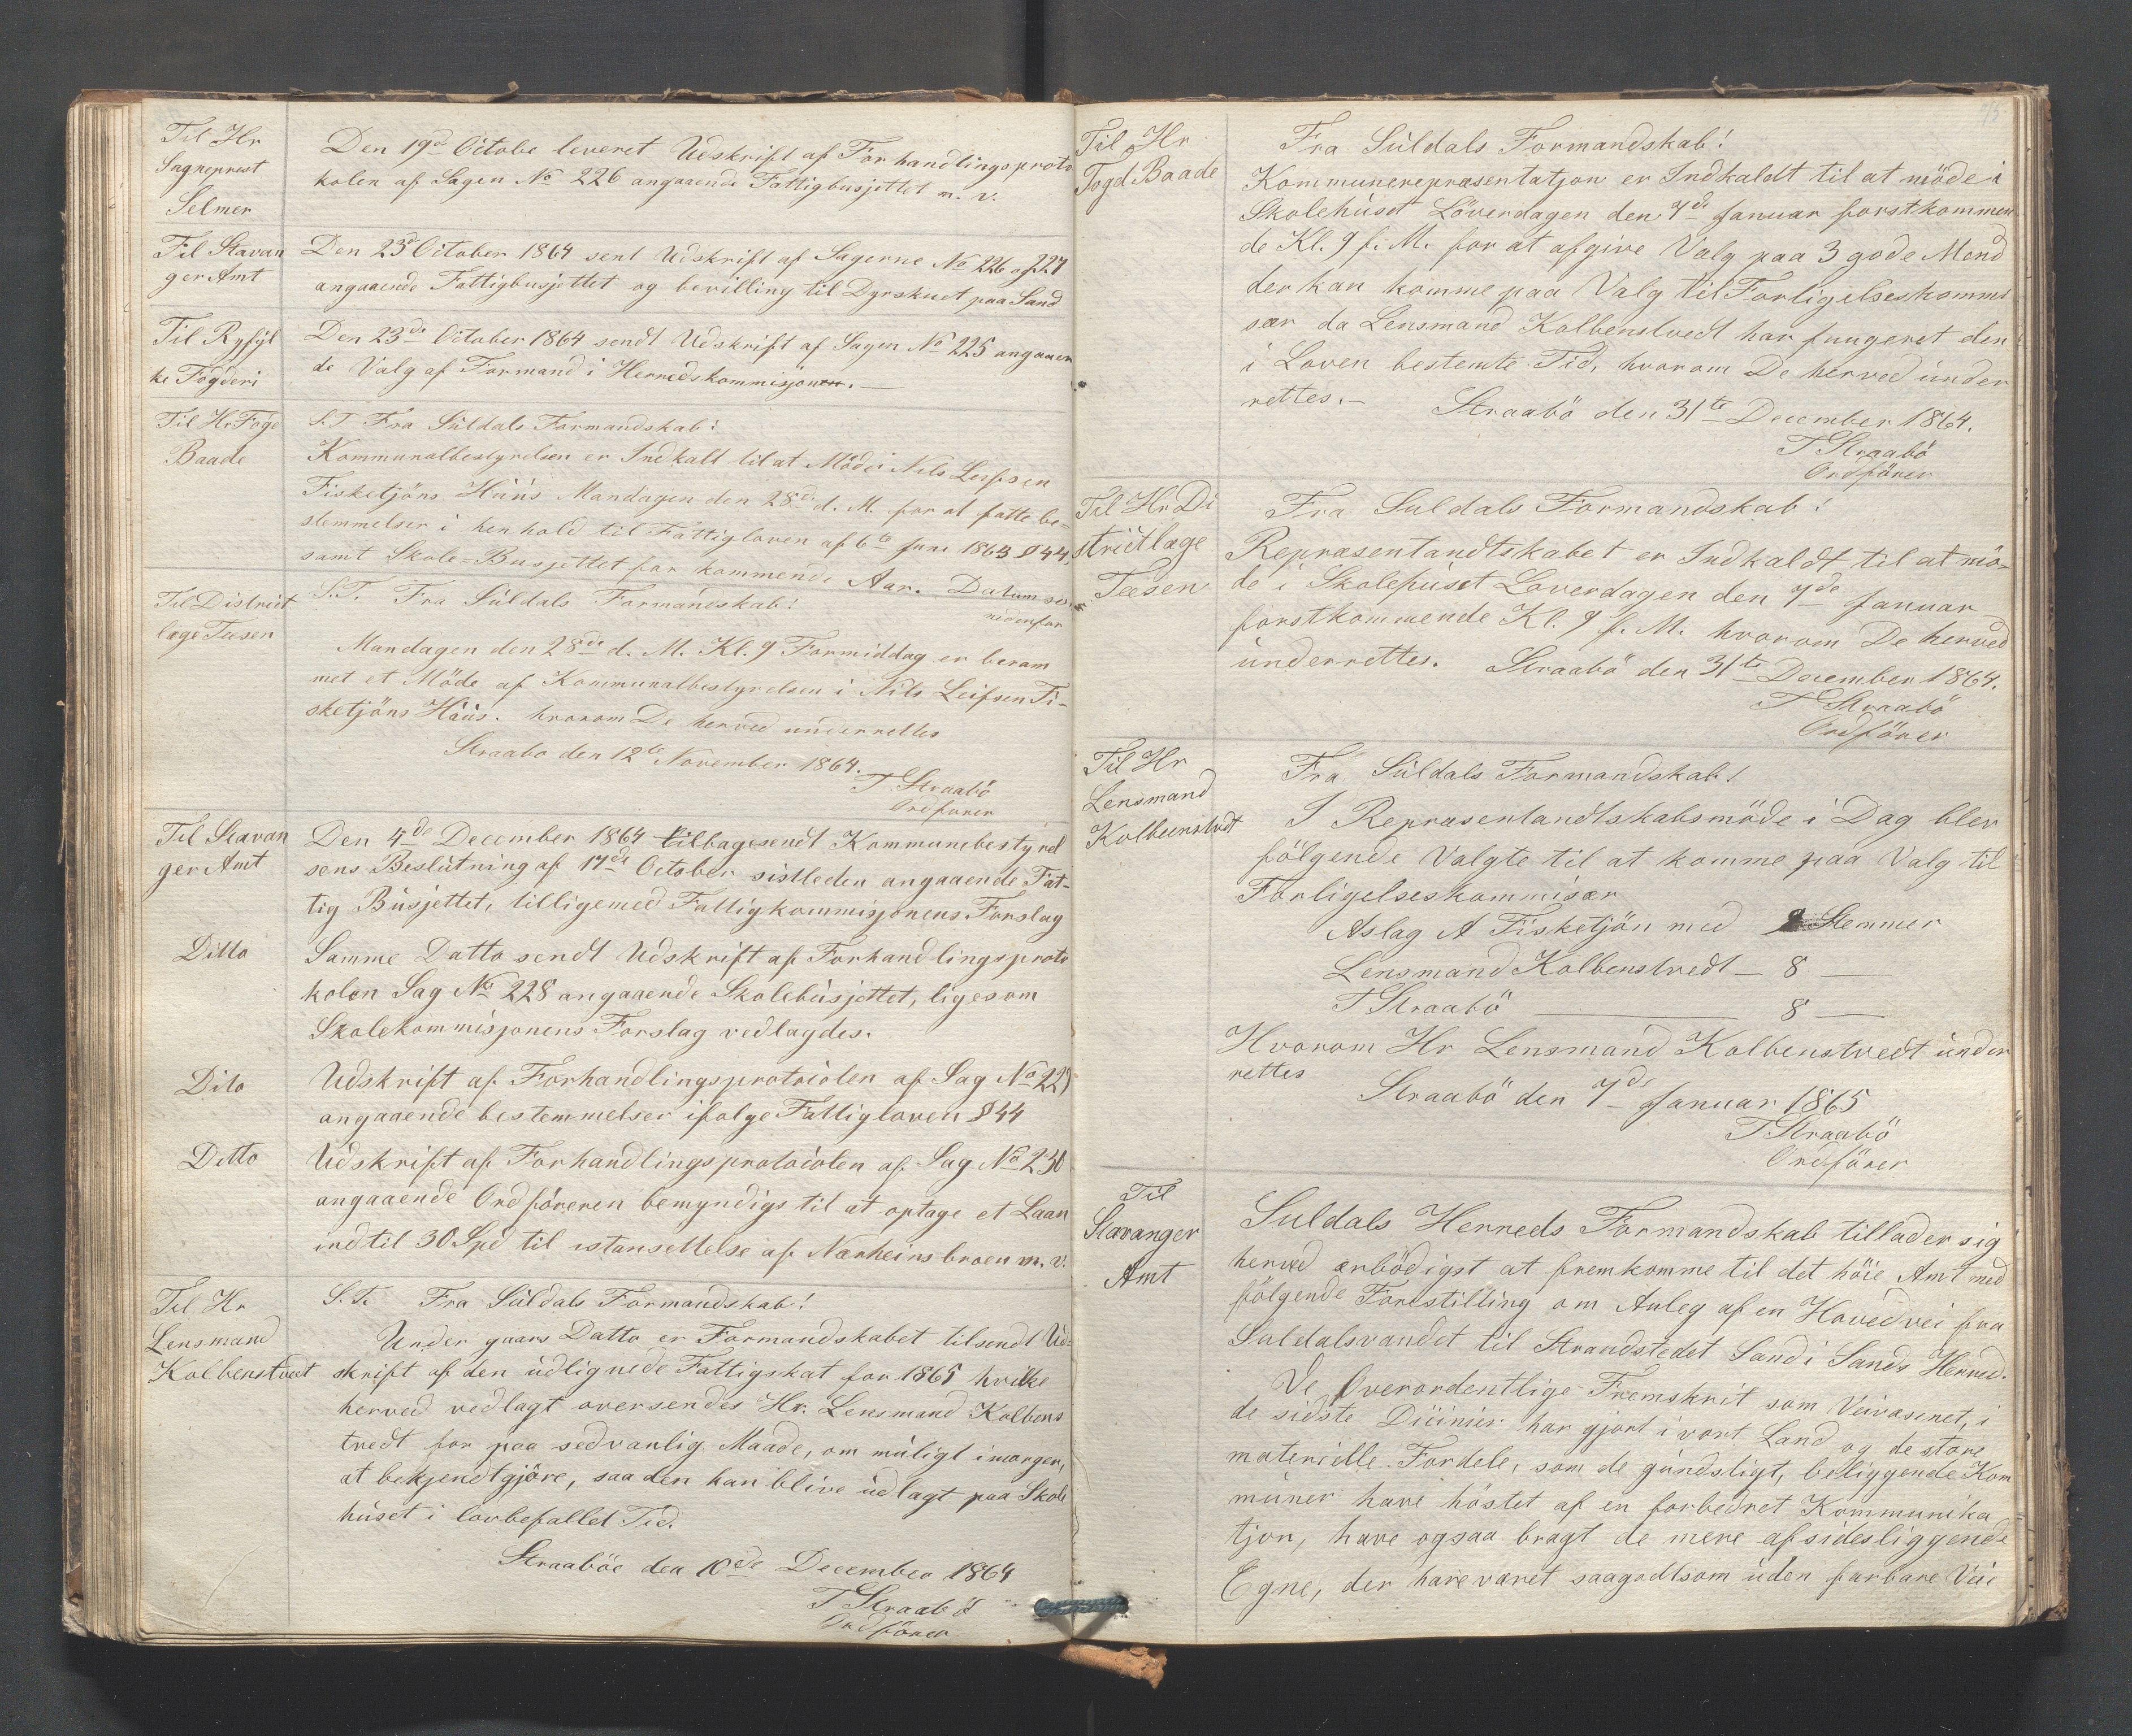 Til Hr
Sogneprest
Selmer
Den 19de Octobe leveret Udskrift af Forhandlingsproto
kolen af Sagen No 226 angaaende Fattigbusjettet m. v.
Til Stavan
ger Amt
Den 23de October 1864 sent Udskrift af Sagerne No 226 og 227
angaaende Fattigbusjettet og bevilling til Dyrskuet paa Sand
Til Ryfyl
ke Fogderi
Den 23de October 1864 sendt Udskrift af Sagen No 225 angaaen
de Valg af Formand i Herredskommisjonen.
Til Hr Foged
Baade
S.T. Fra Süldals Formandskab!
Kommunalbestyrelsen er Indkalt til at Möde i Nils Leifsen
Fisketjöns Hüüs Mandagen den 28de d. M. for at fatte be-
stemmelser i henhold til Fattigloven af 6te Juni 1863 § 44,
samt Skole-Busjettet for kommende Aar. Datum se
nedenfor
Til District
læge Teesen
S.T. Fra Süldals Formandskab!
Mandagen den 28de d. M. Kl. 9 Formiddag er beram
met et Möde af Kommunalbestyrelsen i Nils Leifsen Fi-
sketjöns Hüüs. hvorom De herved underrettes
Straabo den 12te November 1864.
T Straabö
Ordförer
Til Stavan
ger Amt
Den 4de December 1864 tilbagesendt Kommunebestyrel
sens Beslütning af 17de October sistleden angaaende Fat-
tig Büsjettet, tilligemed Fattigkommisjonens Forslag
Ditto
Samme Datto sendt Udskrift af Forhandlingsproto
kolen Sag No 228 angaaende Skolebüsjettet, ligesom
Skolekommisjonens Forslag vedlagdes.
Dito
Udskrift af Forhandlingsprotocolen af Sag No 229
angaaende bestemmelser ifølge Fattigloven § 44
Ditto
Udskrift af Forhandlingsprotocolen af Sag No 230
angaaende Ordföreren bemyndigs til at optage et Laan
indtil 30 Spd til istansettelse af Nærheims broen m. v.
Til Hr
Lensmand
Kolbenstvedt
S.T. Fra Süldals Formandskab!
Under gaars Datto er Formandskabet tilsendt Ud-
skrift af den üdlignede Fattigskat for 1865 hvilke
herved vedlagt oversendes Hr. Lensmand Kolbens
tvedt for paa sedvanlig Maade, om müligt imorgen,
at bekjendtgjöre, saa den kan blive üdlagt paa Skole
hüset i lovbefallet Tid.
Straaböe den 10de December 1864
T Straabö
Ordförer
Til Hr
Fogd Baade
Fra Süldals Formandskab!
Kommunerepræsentatjon er Indkaldt til at möde i
Skolehüset Löverdagen den 7de Januar forstkommen
de Kl. 9 f. M. for at afgive Valg paa 3 gode Mend
der kan komme paa Valg til Forligelseskommi
sær da Lensmand Kolbenstvedt har fungeret den
i Loven bestemte Tid, hvorom De herved ünder
rettes.
Straabö den 31te December 1864.
T Straabö
Ordförer
Til Hr Di
strictlæge
Teesen
Fra Suldals Formandskab!
Repræsentandtskabet er Indkaldt til at mö-
de i Skolehüset Loverdagen den 7de Januar
forstkommende Kl. 9 f. M. hvorom De herved
ünderrettes. Straabö den 31te December 1864.
T Straabö
Ordförer
Til Hr
Lensmand
Kolbeenstvedt
Fra Süldals Formandskab!
I Repræsentandtskabsmöde i Dag blev
fölgende Valgte til at komme paa Valg til
Forligelseskommisær
Aslag A Fisketjön med Stemmer
Lensmand Kolbenstvedt — 8 —
T Straabö — 8 —
Hvorom Hr Lensmand Kolbenstvedt ünder
rettes
Straabö den 7de Januar 1865
T Straabö
Ordförer
Til
Stavanger
Amt
Suldals Herreds Formandskab tillader sig
herved ærbödigst at fremkomme til det höie Amt med
fölgende Forestilling om Anleg af en Hovedvei fra
Suldalsvandet til Strandstedet Sand i Sands Herred.
De Overordentlige Fremskrit som Veivæsenet, i
de sidste Diciniér har gjort i vort Land og de store
materielle Fordele, som de gündsligt, beliggende Kom
müner have höstet af en forbedret Kommunika
tjon, have ogsaa bragt de mere afsidesliggende
Egne, der have været saagodtsom üden farbare Veie